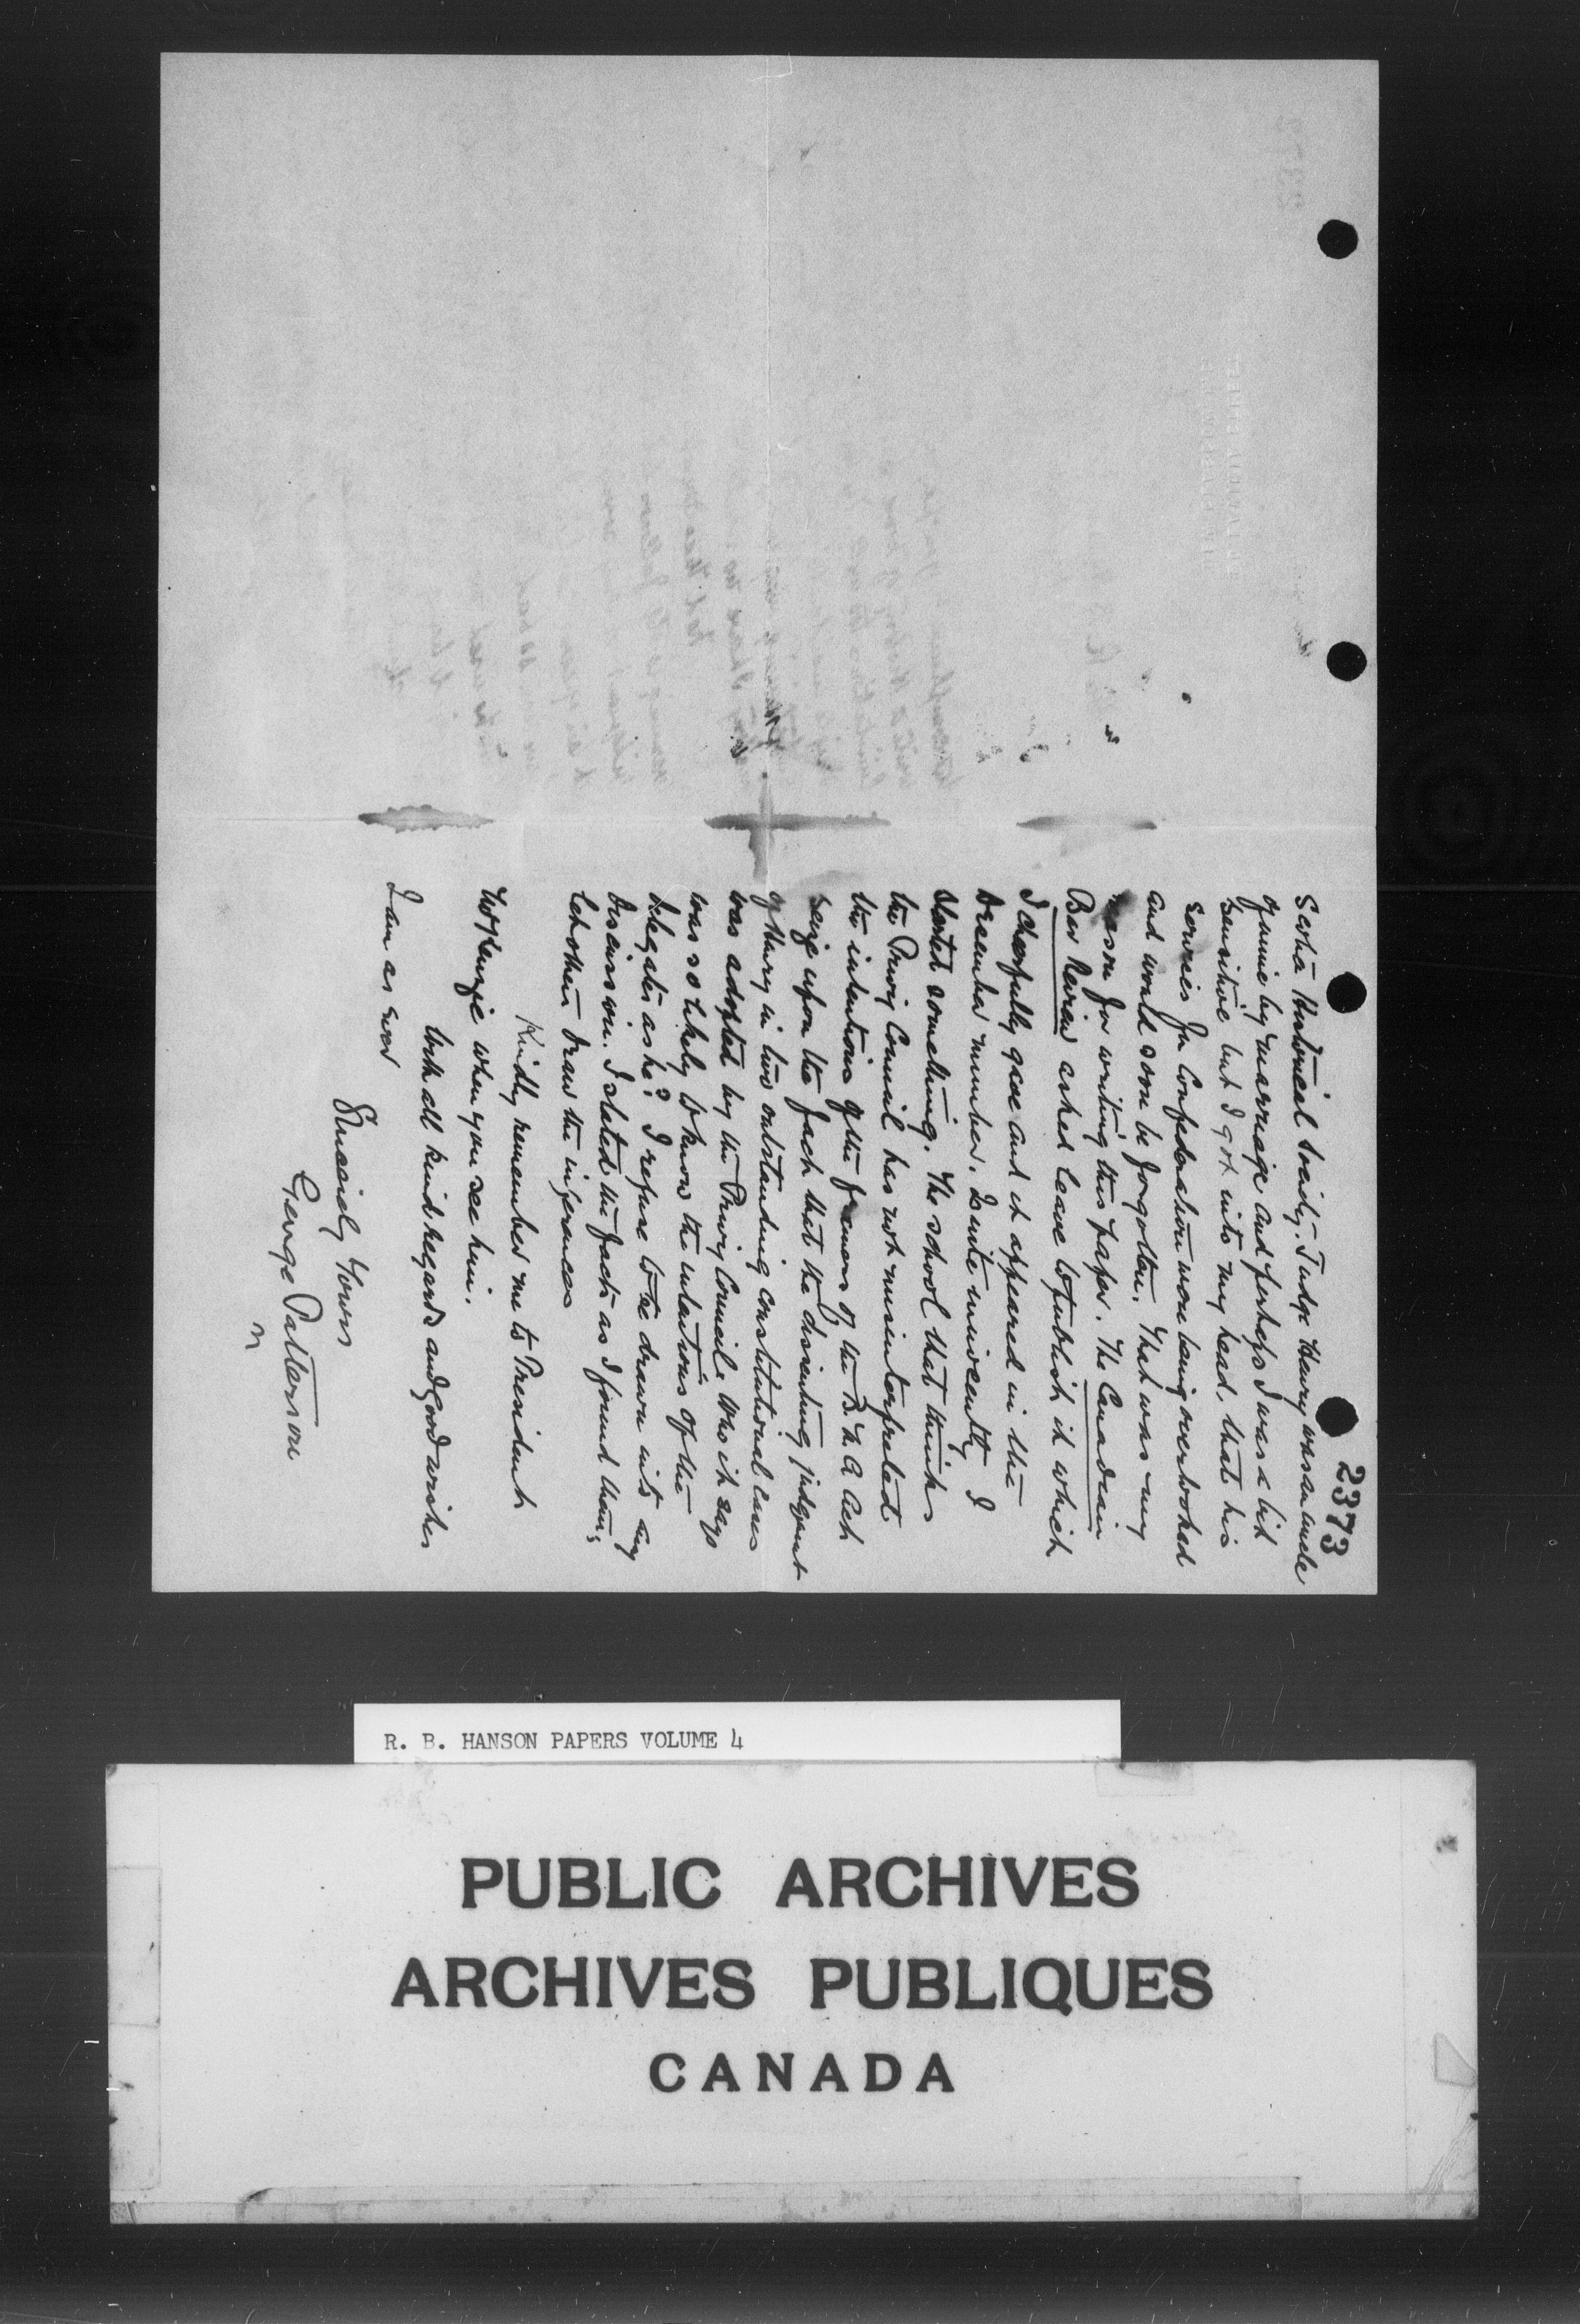 2373
Scotia Historical Society. Judge Henry was an uncle
of mine by marriage and perhaps I was a bit
sensitive but I got into my head, that his
services for Confederation were being overlooked
and would soon be forgotten. That was my
reason for writing this paper. The Canadian
Bar Review asked leave to publish it which
I cheerfully gave and it appeared in the
December number. Quite innocently I
started something. The school that thinks
the Privy Council has not misinterpreted
the intentions of the framers of the B. N. A Act
seize upon the fact that the dissenting judgment
of Henry in two outstanding constitutional cases
was adopted by the Privy Council. Who it says
was so likely to know the intentions of the
delegates as he? I refuse to be drawn into any
discussion. I stated the facts as I found them;
let others draw the inferences
Kindly remember me to President
when you see him.
With all kind regards and good wishes
I am as ever
Sincerely Yours
George Patterson
R. B. HANSON PAPERS VOLUME 4
PUBLIC ARCHIVES
ARCHIVES PUBLIQUES
CANADA